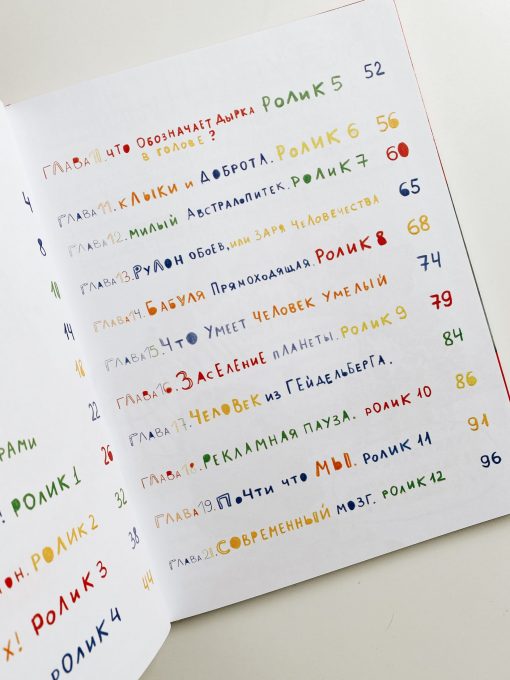 4
8
10
14
18
РАМИ 22
! РОЛИК 1 26
ОН. РОЛИК 2 32
Х! РОЛИК 3 38
РОЛИК 4 44
ГЛАВА 10. ЧТО ОБОЗНАЧАЕТ ДЫРКА РОЛИК 5 52
В ГОЛОВЕ?
ГЛАВА 11. КЛЫКИ И ДОБРОТА. РОЛИК 6 56
ГЛАВА 12. МИЛЫЙ АВСТРАЛОПИТЕК. РОЛИК 7 60
ГЛАВА 13. РУЛОН ОБОЕВ, ИЛИ ЗАРЯ ЧЕЛОВЕЧЕСТВА 65
ГЛАВА 14. БАБУЛЯ ПРЯМОХОДЯЩАЯ. РОЛИК 8 68
ГЛАВА 15. ЧТО УМЕЕТ ЧЕЛОВЕК УМЕЛЫЙ 74
ГЛАВА 16. ЗАСЕЛЕНИЕ ПЛАНЕТЫ. РОЛИК 9 79
ГЛАВА 17. ЧЕЛОВЕК ИЗ ГЕЙДЕЛЬБЕРГА. 84
ГЛАВА 18. РЕКЛАМНАЯ ПАУЗА. РОЛИК 10 86
ГЛАВА 19. ПОЧТИ ЧТО МЫ. РОЛИК 11 91
ГЛАВА 20. СОВРЕМЕННЫЙ МОЗГ. РОЛИК 12 96